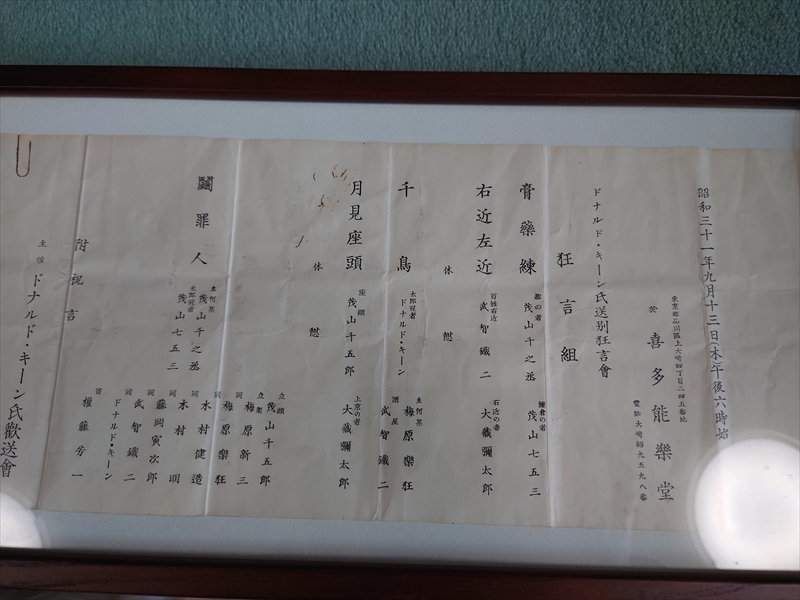 昭和三十一年九月十三日(木)午後六時始
東京都品川區上大崎四丁目二四五番地
於 喜多能樂堂
電話大崎四九五九八番
ドナルド・キーン氏送別狂言會
狂言組
膏藥練
都の者 茂山千之丞
鎌倉の者 茂山七五三
右近左近
百姓右近 武智鐵二
右近の妻 大藏彌太郎
休憩
千鳥
太郎冠者 ドナルド・キーン
主何某 梅原樂狂
酒屋 武智鐵二
月見座頭
座頭 茂山千五郎
上京の者 大藏彌太郎
休憩
鬮罪人
主何某 茂山千之丞
太郎冠者 茂山七五三
立頭 茂山千五郎
立衆 梅原新三
同 梅原樂狂
同 木村健造
同 木村明
同 藤岡寅次郎
同 武智鐵二
同 ドナルド・キーン
笛 權藤芳一
附祝言
主催 ドナルド・キーン氏歡送會